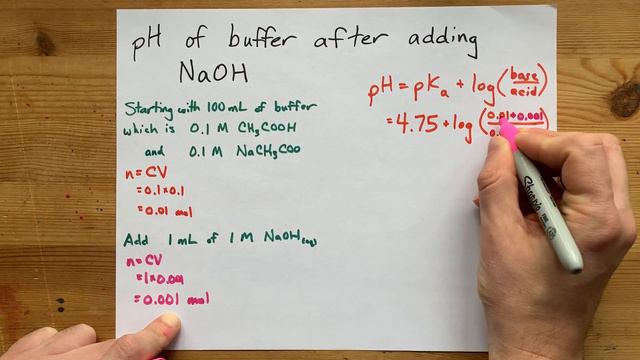 pH of buffer after adding
NaOH
Starting with 100 mL of buffer
which is 0.1 M CH₃COOH
and 0.1 M NaCH₃COO
n = CV
= 0.1 × 0.1
= 0.01 mol
Add 1 mL of 1 M NaOH(aq)
n = CV
= 1 × 0.001
= 0.001 mol
pH = pKa + log(base/acid)
= 4.75 + log(0.01+0.001
Sharpie